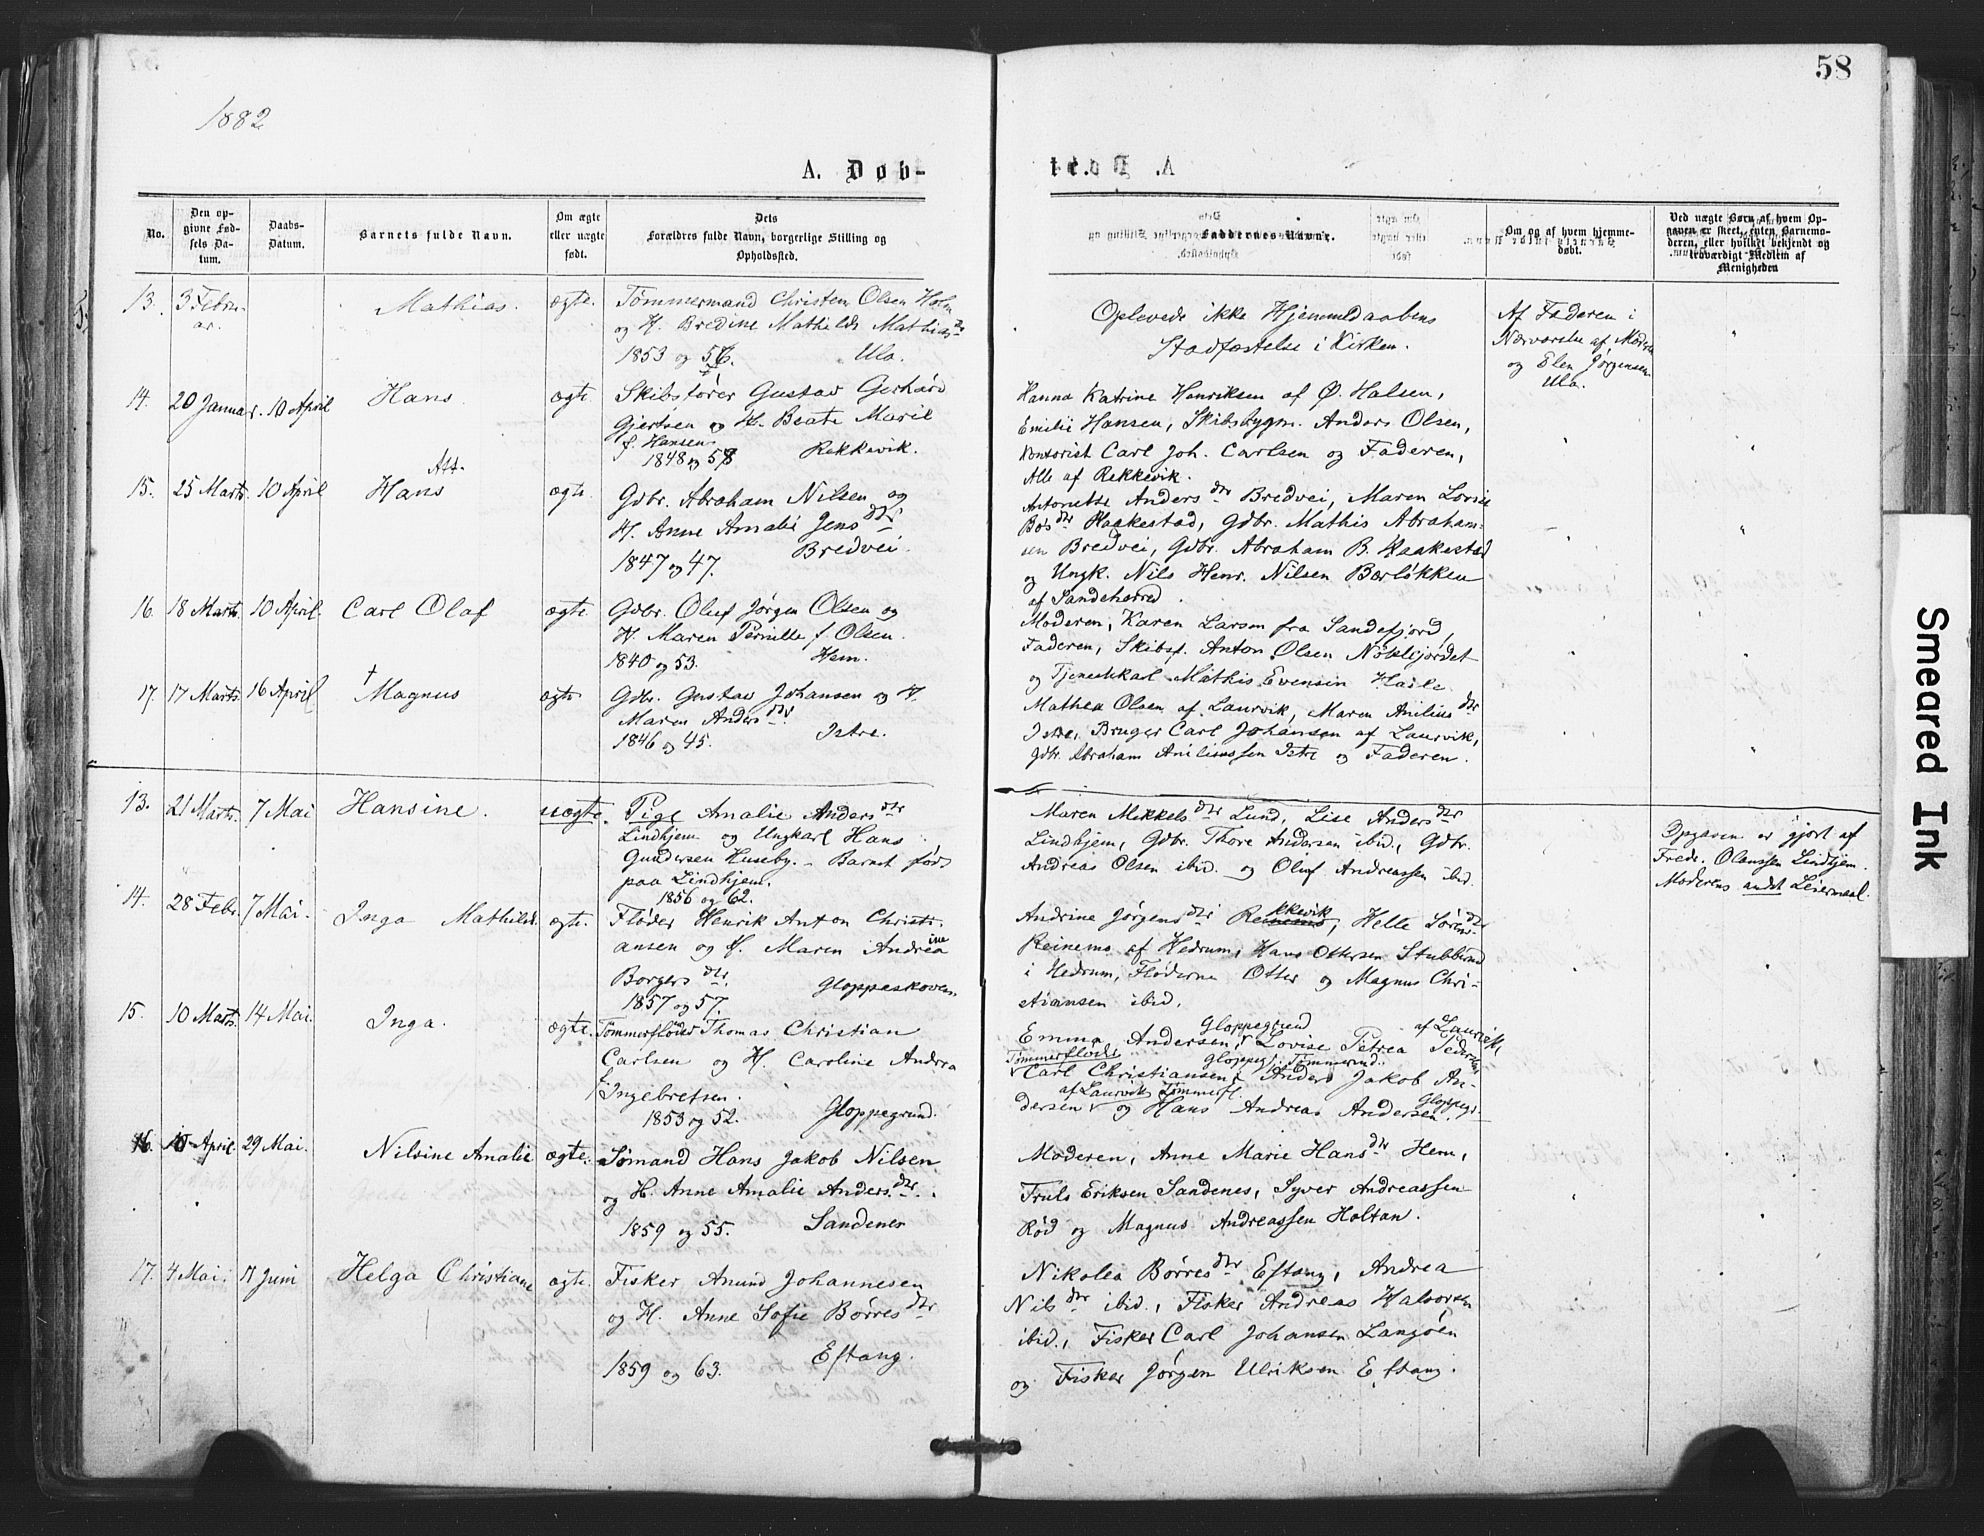 58
1882
A. Døb-
No.
Den op-
givne Fød-
sels Da-
tum.
Daabs-
Datum.
Barnets fulde Navn.
Om ægte
eller uægte
født.
Dets
Forældres fulde Navn, borgerlige Stilling og
Opholdssted.
Faddernes Navne.
Om og af hvem hjemme-
døbt.
Ved uægte Børn af hvem Op-
gaven er skeet, enten Barnemo-
deren, eller hvilket bekjendt og
troværdigt Medlem af
Menigheden
13. 3 Febru-
ar.
Mathias.
ægte.
Tømmermand Christen Olsen Holm
og H. Bredine Mathilde Mathiasdtr
1853 og 56. Ula.
Oplevede ikke Hjemmedaabens
Stadfæstelse i Kirken.
Af Faderen i
Nærværelse af Moderen
og Elen Jørgensen
Ula.
14. 20 Januar. 10 April
Hans.
ægte.
Skibsfører Gustav Gerhard
Gjertsen og H. Beate Marie
f. Hansen
1848 og 58 Rekkevik.
Hanna Katrine Henriksen af Ø. Halsen,
Emilie Hansen, Skibsbygm. Anders Olsen,
Kontorist Carl Joh. Carlsen og Faderen,
Alle af Rekkevik.
15. 25 Marts. 10 April
Att.
Hans
ægte
Gdbr. Abraham Nilsen og
H. Anne Amalie Jensdtr
1847 og 47. Bredvei.
Antonette Andersdtr Bredvei, Maren Lovise
Bosdtr Haakestad, Gdbr. Mathis Abraham-
sen Bredvei, Gdbr. Abraham B. Haakestad
og Ungk. Nils Henr. Nilsen Bærløkken
af Sandeherred.
16. 18 Marts. 10 April.
Carl Olaf
ægte
Gdbr. Oluf Jørgen Olsen og
H. Maren Pernille f. Olsen.
1840 og 53. Hem.
Moderen, Karen Larsen fra Sandefjord,
Faderen, Skibsf. Anton Olsen Nøklejordet
og Tjenestekarl Mathis Evensen Hasle
17. 17 Marts. 16 April
†
Magnus
ægte
Gdbr. Gustav Johansen og H.
Maren Andersdtr
1846 og 45. Istre.
Mathea Olsen af Laurvik, Maren Aniliusdtr
Istre, Bruger Carl Johansen af Laurvik,
Gdbr. Abraham Aniliussen Istre og Faderen.
13. 21 Marts. 7 Mai
Hansine.
uægte.
Pige Amalie Andersdtr
Lindhjem og Ungkarl Hans
Gundersen Huseby. - Barnet født
paa Lindhjem.
1856 og 62.
Maren Mikkelsdtr Lund, Lise Andersdtr
Lindhjem, Gdbr. Thore Andersen ibid., Gdbr.
Andreas Olsen ibid. og Oluf Andreassen ibid.
Opgaven er gjort af
Fredr. Olaussen Lindhjem.
Moderens andet Leiermaal.
14. 28 Febr. 7 Mai.
Inga Mathilde.
ægte.
Fløder Henrik Anton Christi-
ansen og H. Maren Andreaine
Borgersdtr.
1857 og 57. Gloppeskoven.
Andrine Jørgensdtr Reinemo kkevik, Helle Sørensdtr
Reinemo af Hedrum, Hans Ottersen Stubberud
i Hedrum, Fløderne Otter og Magnus Chri-
stiansen ibid.
15. 10 Marts. 14 Mai.
Inga.
ægte.
Tømmerfløder Thomas Christian
Carlsen og H. Caroline Andrea
f. Ingebretsen.
1853 og 52. Gloppegrund.
Gloppegrund af Laurvik,
Emma Andersen, Lovise Petrea Pedersen
Tømmerfløder Gloppeg. Tømmerfld.
Carl Christiansen, Anders Jakob An-
af Laurvik Tømmerfl. Gloppegr.
dersen og Hans Andreas Andersen.
16. 10 April. 29 Mai.
Nilsine Amalie
ægte.
Sømand Hans Jakob Nilsen
og H. Anne Amalie Andersdtr.
1859 og 55. Sandenes
Moderen, Anne Marie Hansdtr Hem,
Truls Eriksen Sandenes, Syver Andreassen
Rød og Magnus Andreassen Holtan.
17. 4 Mai. 11 Juni
Helga Christiane
ægte.
Fisker Anund Johannesen
og H. Anne Sofie Børresdtr
Eftang.
1859 og 63.
Nikolea Børresdtr Eftang, Andrea
Nilsdtr ibid., Fisker Andreas Halvorsen
ibid., Fisker Carl Johansen Langøen
og Fisker Jørgen Ulriksen Eftang.
Smeared Ink